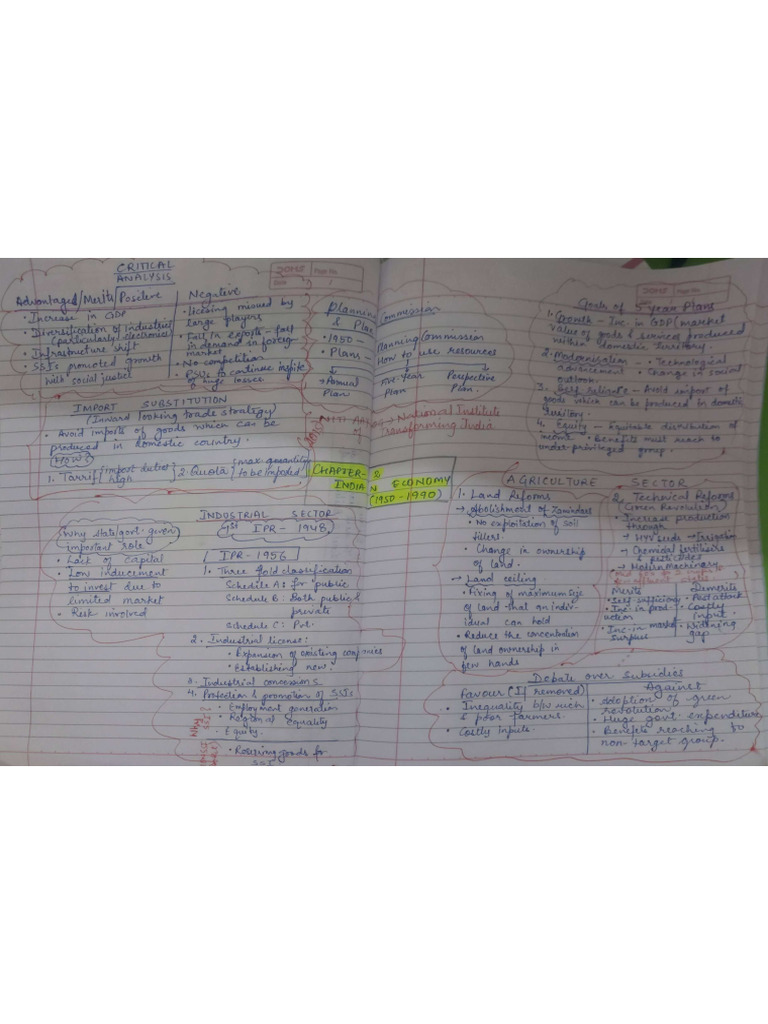 CRITICAL
ANALYSIS
Advantages/Merits/Positive
• Increase in GDP
• Diversification of Industries
(particularly electronics)
• Infrastructure shift
• SSIs promoted growth
with social justice
Negative
• licising misused by
large players
• Fall in exports - fall
in demand in foreign
market
• No competition
• PSUs to continue inspite
of huge losses.
IMPORT SUBSTITUTION
(Inward looking trade strategy)
• Avoid imports of goods which can be
produced in domestic country.
HOW?
1. Tarrif (import duties high
2 Quota (max. quantity to be imported
INDUSTRIAL SECTOR
1st IPR - 1948
Why state/govt. given
important role
• Lack of Capital
• Low inducement
to invest due to
limited market
• Risk involved
IPR-1956
1. Three fold classification
Schedule A: for public
Schedule B: Both public &
private
Schedule C: Pvt.
2. Industrial license:
• Expansion of existing companies
• Establishing new.
3. Industrial concessions
4. Protection & promotion of SSIs
• Employment generation
• Regional equality
• Equity.
• Reserving goods for
SSI
Planning Commission
& Plan
1950 - Planning Commission
• Plans - How to use resources
→ Annual Plan
Five-Year Plan
Perspective Plan.
(2015) NITI AAYOG → National Institute
Transforming India
CHAPTER-2
INDIAN ECONOMY
(1950-1990)
Goals of 5 year Plans
1. Growth - Inc. in GDP (market
value of goods & services produced
within domestic territory)
2. Modernisation - • Technological
advancement • Change in social
outlook.
3. Self Reliance - Avoid import of
goods which can be produced in domestic
territory.
4. Equity - Equitable distribution of
income. • Benefits must reach to
under-privileged group.
AGRICULTURE SECTOR
1. Land Reforms
→ Abolishment of Zamindars
• No exploitation of soil
tillers.
• Change in ownership
of land.
→ Land ceiling
• Fixing of maximum size
of land that an indiv-
idual can hold
• Reduce the concentration
of land ownership in
few hands
2. Technical Reforms
(Green Revolution)
• Increase production
through
→ HYV seeds → Irrigation
→ Chemical fertilisers
& pesticides
→ Modern machinery
Merits
• Self sufficiency
• Inc. in prod-
uction
• Inc-in market
surplus
Demerits
• Pest attack
• Costly
input
• Widening
gap
Debate over Subsidies
Favour (If removed)
• Inequality b/w rich
& poor farmers.
• Costly Inputs.
Against
• Adoption of green
revolution
• Huge govt. expenditure
• Benefits reaching to
non-target group.